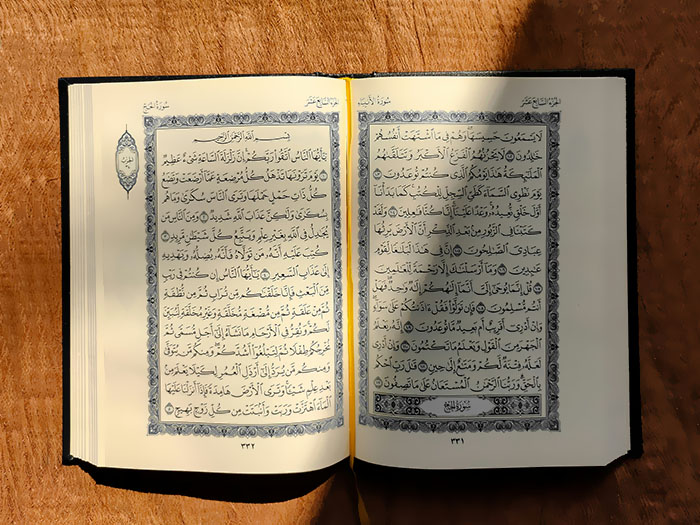 الجزء السابع عشر
سورة الأنبياء
لَا يَسْمَعُونَ حَسِيسَهَا ۖ وَهُمْ فِي مَا ٱشْتَهَتْ أَنفُسُهُمْ
خَٰلِدُونَ ١٠٢ لَا يَحْزُنُهُمُ ٱلْفَزَعُ ٱلْأَكْبَرُ وَتَتَلَقَّىٰهُمُ
ٱلْمَلَٰٓئِكَةُ هَٰذَا يَوْمُكُمُ ٱلَّذِي كُنتُمْ تُوعَدُونَ ١٠٣
يَوْمَ نَطْوِي ٱلسَّمَآءَ كَطَيِّ ٱلسِّجِلِّ لِلْكُتُبِ ۚ كَمَا بَدَأْنَآ
أَوَّلَ خَلْقٍ نُّعِيدُهُۥ ۚ وَعْدًا عَلَيْنَآ ۚ إِنَّا كُنَّا فَٰعِلِينَ ١٠٤ وَلَقَدْ
كَتَبْنَا فِي ٱلزَّبُورِ مِنۢ بَعْدِ ٱلذِّكْرِ أَنَّ ٱلْأَرْضَ يَرِثُهَا
عِبَادِيَ ٱلصَّٰلِحُونَ ١٠٥ إِنَّ فِي هَٰذَا لَبَلَٰغًا لِّقَوْمٍ
عَٰبِدِينَ ١٠٦ وَمَآ أَرْسَلْنَٰكَ إِلَّا رَحْمَةً لِّلْعَٰلَمِينَ
١٠٧ قُلْ إِنَّمَا يُوحَىٰٓ إِلَيَّ أَنَّمَآ إِلَٰهُكُمْ إِلَٰهٌ وَٰحِدٌ ۖ فَهَلْ
أَنتُم مُّسْلِمُونَ ١٠٨ فَإِن تَوَلَّوْا۟ فَقُلْ ءَاذَنتُكُمْ عَلَىٰ سَوَآءٍ ۖ
وَإِنْ أَدْرِيٓ أَقَرِيبٌ أَم بَعِيدٌ مَّا تُوعَدُونَ ١٠٩ إِنَّهُۥ يَعْلَمُ
ٱلْجَهْرَ مِنَ ٱلْقَوْلِ وَيَعْلَمُ مَا تَكْتُمُونَ ١١٠ وَإِنْ أَدْرِي
لَعَلَّهُۥ فِتْنَةٌ لَّكُمْ وَمَتَٰعٌ إِلَىٰ حِينٍ ١١١ قَٰلَ رَبِّ ٱحْكُم
بِٱلْحَقِّ ۗ وَرَبُّنَا ٱلرَّحْمَٰنُ ٱلْمُسْتَعَانُ عَلَىٰ مَا تَصِفُونَ ١١٢
سُورَةُ الحَجِّ
٣٣١
الجزء السابع عشر
سورة الحج
الحزب
بِسْمِ ٱللَّهِ ٱلرَّحْمَٰنِ ٱلرَّحِيمِ
يَٰٓأَيُّهَا ٱلنَّاسُ ٱتَّقُوا۟ رَبَّكُمْ ۚ إِنَّ زَلْزَلَةَ ٱلسَّاعَةِ شَيْءٌ عَظِيمٌ
١ يَوْمَ تَرَوْنَهَا تَذْهَلُ كُلُّ مُرْضِعَةٍ عَمَّآ أَرْضَعَتْ وَتَضَعُ
كُلُّ ذَاتِ حَمْلٍ حَمْلَهَا وَتَرَى ٱلنَّاسَ سُكَٰرَىٰ وَمَا هُم
بِسُكَٰرَىٰ وَلَٰكِنَّ عَذَابَ ٱللَّهِ شَدِيدٌ ٢ وَمِنَ ٱلنَّاسِ مَن
يُجَٰدِلُ فِي ٱللَّهِ بِغَيْرِ عِلْمٍ وَيَتَّبِعُ كُلَّ شَيْطَٰنٍ مَّرِيدٍ ٣
كُتِبَ عَلَيْهِ أَنَّهُۥ مَن تَوَلَّاهُ فَأَنَّهُۥ يُضِلُّهُۥ وَيَهْدِيهِ
إِلَىٰ عَذَابِ ٱلسَّعِيرِ ٤ يَٰٓأَيُّهَا ٱلنَّاسُ إِن كُنتُمْ فِي رَيْبٍ
مِّنَ ٱلْبَعْثِ فَإِنَّا خَلَقْنَٰكُم مِّن تُرَابٍ ثُمَّ مِن نُّطْفَةٍ
ثُمَّ مِنْ عَلَقَةٍ ثُمَّ مِن مُّضْغَةٍ مُّخَلَّقَةٍ وَغَيْرِ مُخَلَّقَةٍ لِّنُبَيِّنَ
لَكُمْ ۚ وَنُقِرُّ فِي ٱلْأَرْحَامِ مَا نَشَآءُ إِلَىٰٓ أَجَلٍ مُّسَمًّى ثُمَّ
نُخْرِجُكُمْ طِفْلًا ثُمَّ لِتَبْلُغُوٓا۟ أَشُدَّكُمْ ۖ وَمِنكُم مَّن يُتَوَفَّىٰ
وَمِنكُم مَّن يُرَدُّ إِلَىٰٓ أَرْذَلِ ٱلْعُمُرِ لِكَيْلَا يَعْلَمَ مِنۢ
بَعْدِ عِلْمٍ شَيْـًٔا ۚ وَتَرَى ٱلْأَرْضَ هَامِدَةً فَإِذَآ أَنزَلْنَا عَلَيْهَا
ٱلْمَآءَ ٱهْتَزَّتْ وَرَبَتْ وَأَنۢبَتَتْ مِن كُلِّ زَوْجٍۭ بَهِيجٍ ٥
٣٣٢